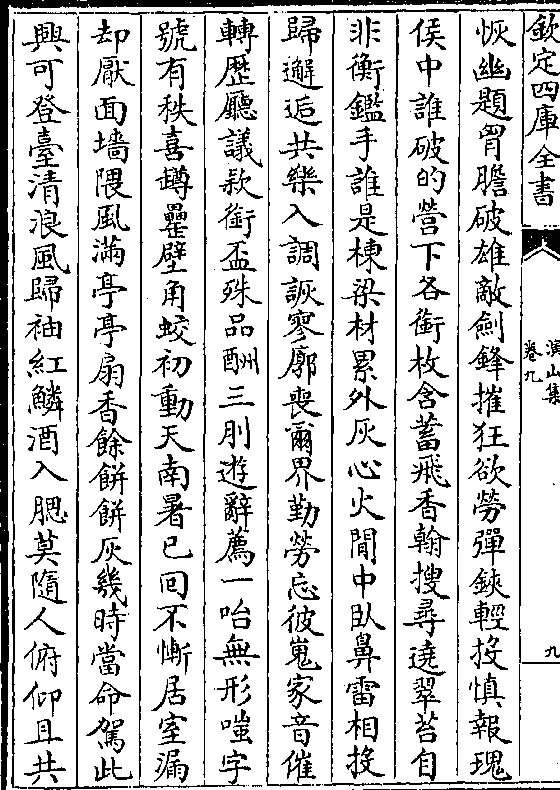 欽定四庫全書
演山集
卷九
九
恢幽題胷膽破雄敵劍鋒摧狂欲勞彈鋏輕投慎報瑰
侯中誰破的營下各銜枚含蓄飛香翰搜尋遶翠苔自
非衡鑑手誰是棟梁材累外灰心火閒中臥鼻雷相投
歸邂逅共樂入調詼寥廓喪爾界勤勞忘彼嵬家音催
轉歴廳議欵銜盃殊品酬三刖遊辭薦一咍無形嗤字
號有秩喜罇罍壁角蛟初動天南暑已回不慚居室漏
却厭面墻隈風滿亭亭扇香餘餅餅灰幾時當命駕此
興可登臺清浪風歸袖紅鱗酒入腮莫隨人俯仰且共